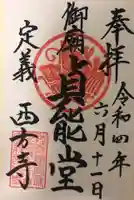 奉拝
令和四年六月十一日
御廟
貞能堂
定義
西方寺